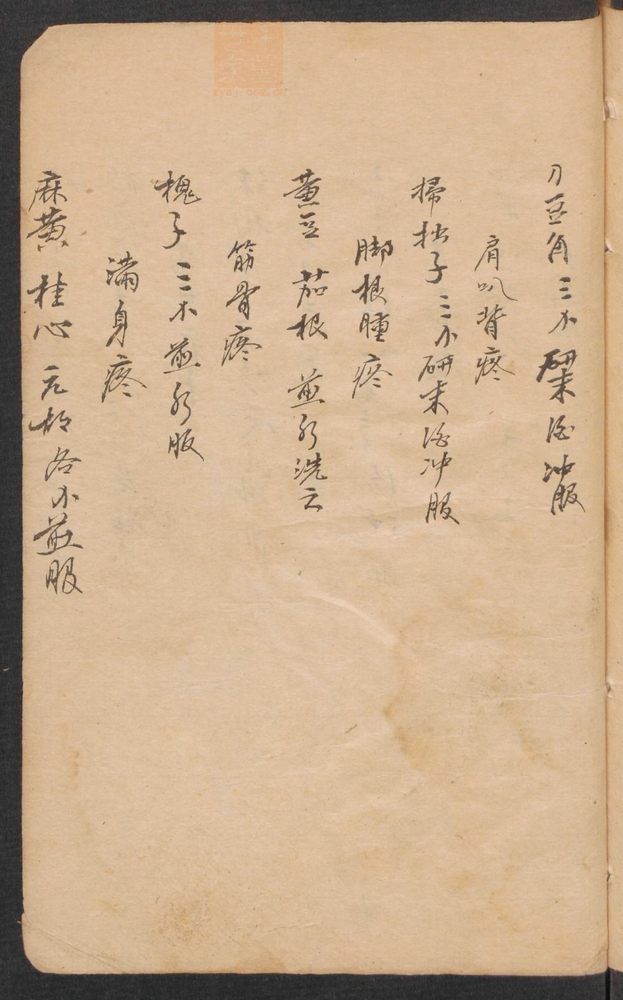 刀豆角三小研末酒冲服
肩叭背疼
掃抾子三小研末酒冲服
脚根腫疼
黄豆 茄根 煎水洗之
筋骨疼
槐子三小煎水服
满身疼
麻黄 桂心 元胡各小煎服